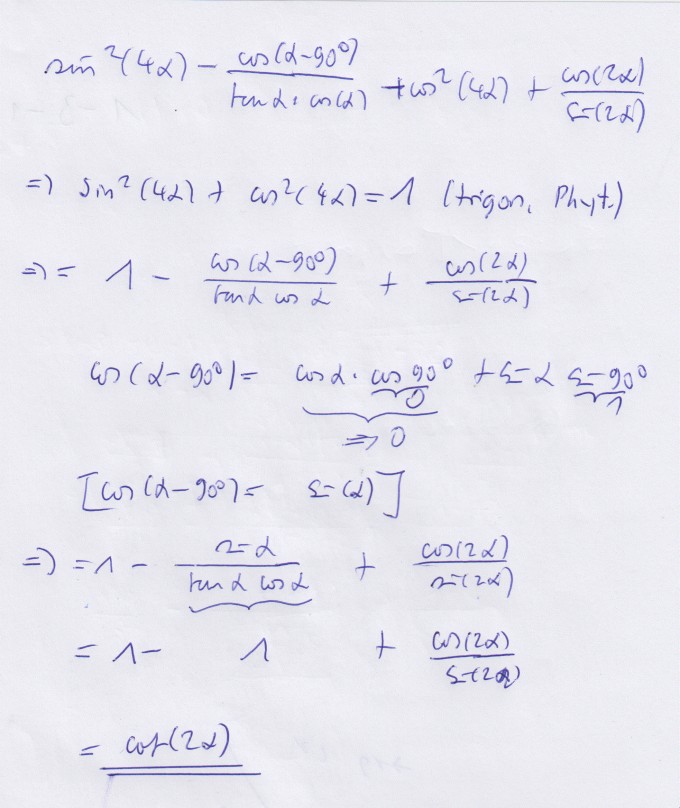 sin²(4α) − cos(α−90°)/(tan α · cos(α)) + cos²(4α) + cos(2α)/sin(2α)
=> sin²(4α) + cos²(4α) = 1 (trigon. Phyt.)
=> = 1 − cos(α−90°)/(tan α cos α) + cos(2α)/sin(2α)
cos(α−90°) = cos α · cos 90° + sin α sin 90°
0 1
=> 0
[cos(α−90°) = sin(α)]
=> = 1 − sin α/(tan α cos α) + cos(2α)/sin(2α)
= 1 − 1 + cos(2α)/sin(2α)
= cot(2α)